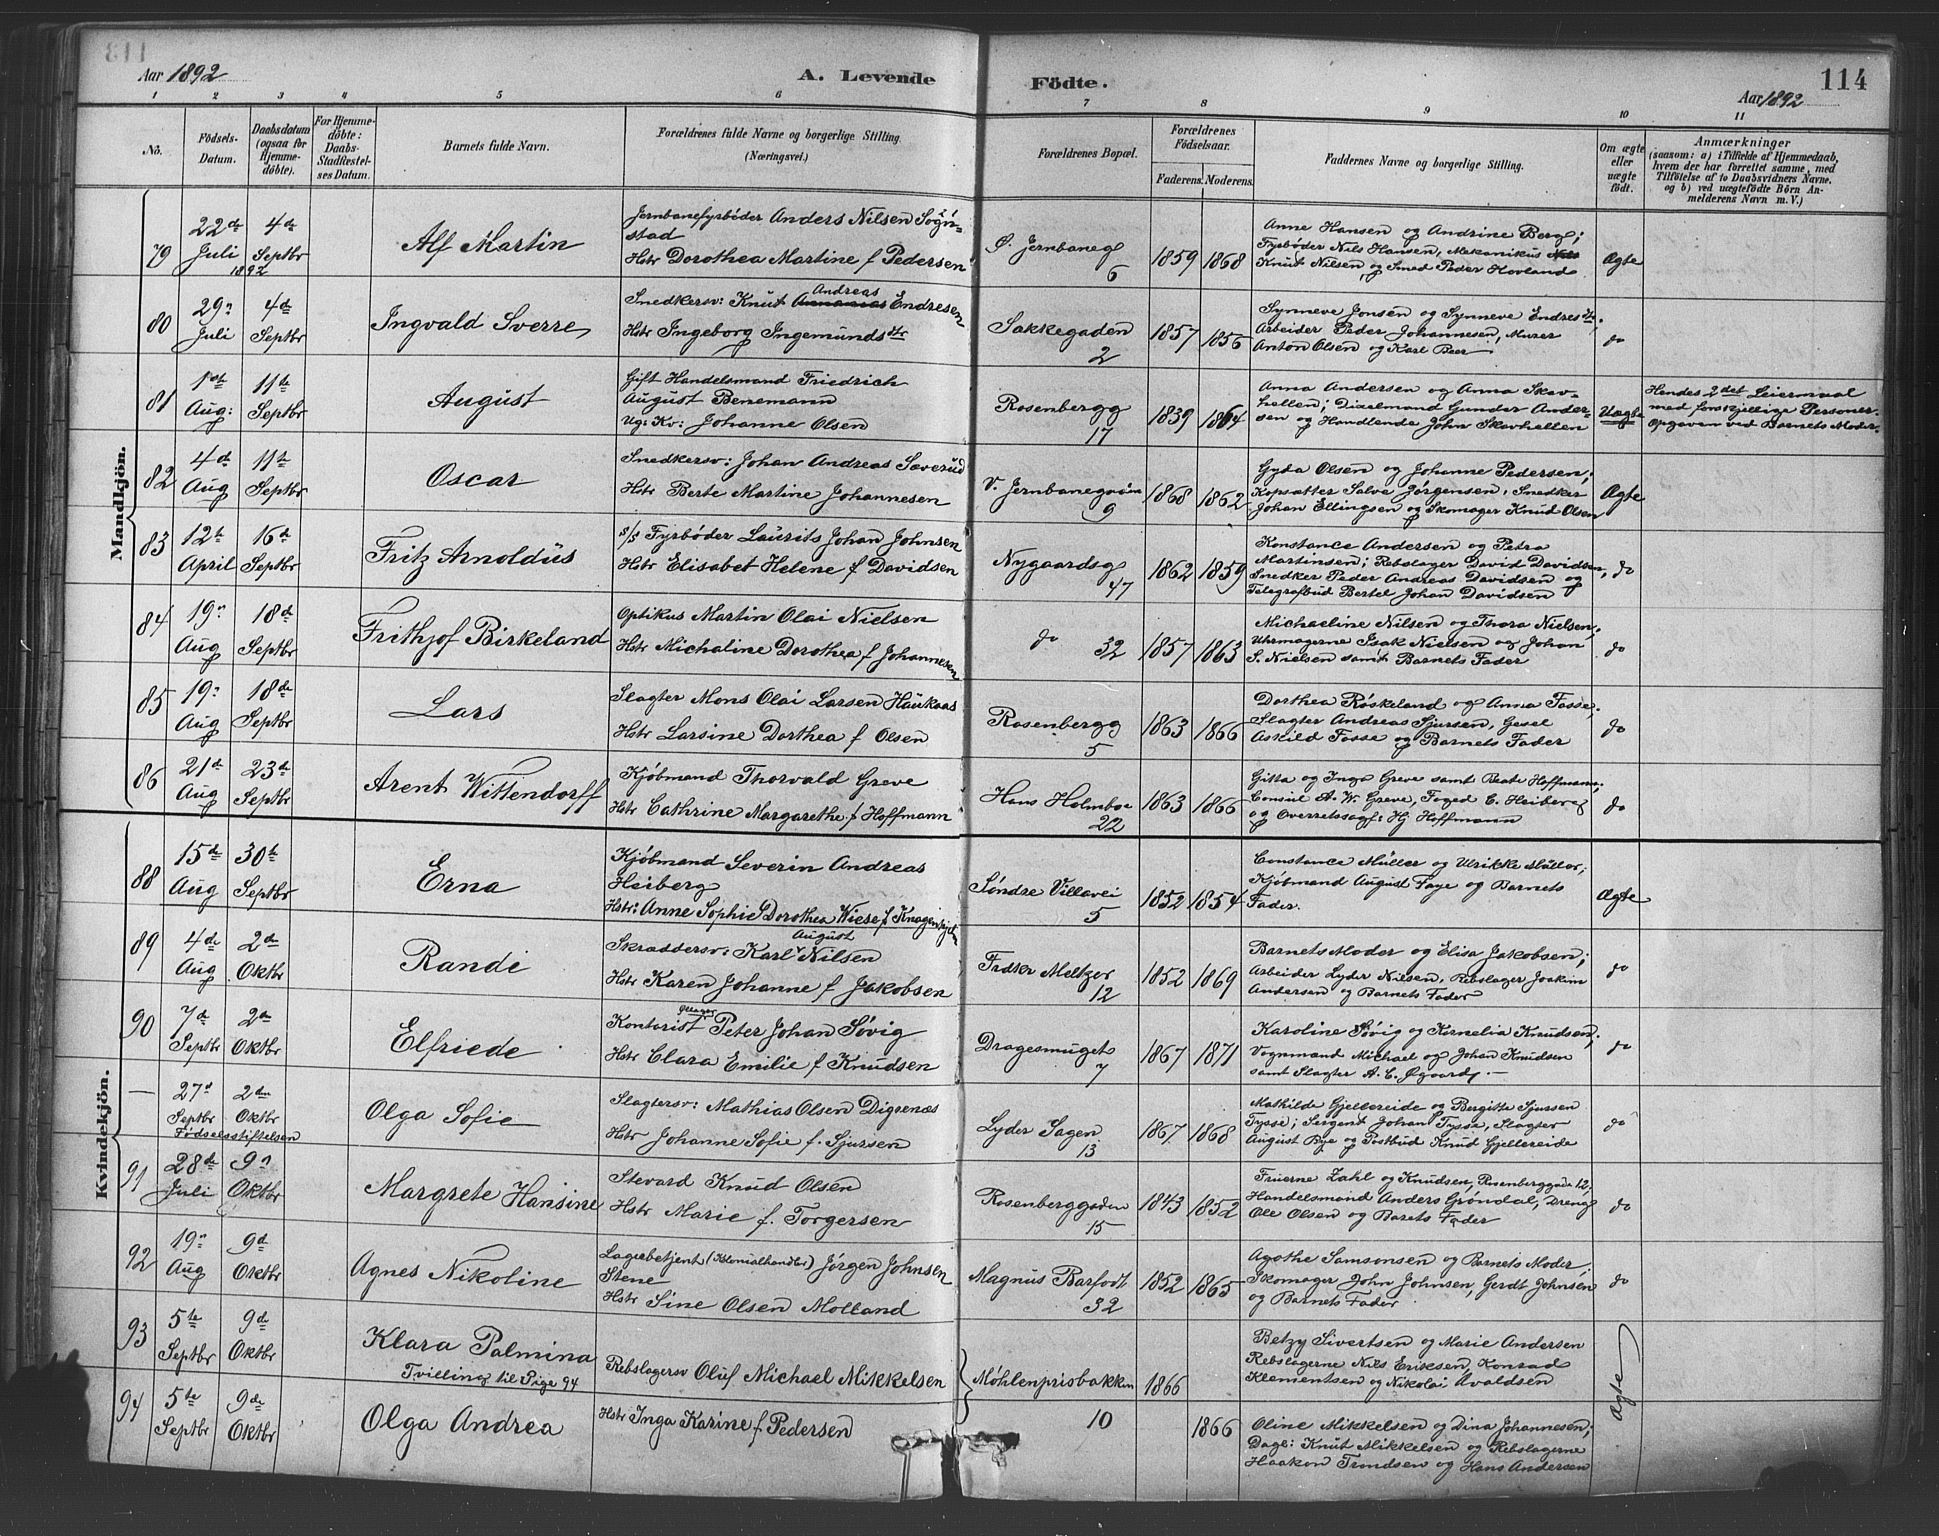 Aar 1892
A. Levende
Fødte.
114
Aar 1892
1 2 3 4 5 6 7 8 9 10 11
No.
Fødsels-
Datum.
Daabsdatum
(ogsaa for
Hjemme-
døbte).
For Hjemme-
døbte:
Daabs-
Stadfæstel-
ses Datum.
Barnets fulde Navn.
Forældrenes fulde Navne og borgerlige Stilling
(Næringsvei.)
Forældrenes Bopæl.
Forældrenes
Fødselsaar.
Faderens. Moderens.
Faddernes Navne og borgerlige Stilling.
Om ægte
eller
uægte
født.
Anmærkninger
(saasom: a) i Tilfælde af Hjemmedaab,
hvem der har forrettet samme, med
Tilføielse af to Daabsvidners Navne,
og b) ved uægtefødte Børn An-
melderens Navn m. V.)
Mandkjön.
79
22de
Juli
1892
4de
Septbr
Alf Martin
Jernbanefyrbøder Anders Nilsen Sogn-
stad
Hstr Dorothea Martine f Pedersen
Ø. Jernbaneg
6
1859 1868
Anne Hansen og Andrine Berg;
Fyrbøder Nils Hansen, Mekanikus
Knut Nilsen og Smed Peder Hovland
Ægte
80
29n
Juli
4de
Septbr
Ingvald Sverre
Andreas
Snedkersv: Knut Endresen
Hstr Ingeborg Ingemundsdtr
Sakkegaden
2
1857 1856
Synneve Jonsen og Synneve Endresdtr;
Arbeider Peder Johannesen, Murer
Anton Olsen og Karl Beer
do
81
1ste
Aug:
11te
Septbr
August
Gift Handelsmand Friedrich
August Benemann
Ug: Kv: Johanne Olsen
Rosenbergg
17
1839 1864
Anna Andersen og Anna Skav-
hellen; Dixelmand Gunder Ander-
sen og Handlende John Skavhellen
Uægte
Hendes 2det Leiermaal
med forskjellige Personer.
Opgaven ved Barnets Moder.
82
4de
Aug
11te
Septbr
Oscar
Snedkersv: Johan Andreas Sæverud
Hstr Berte Martine Johannesen
V. Jernbanegaden
9
1868 1862
Gyda Olsen og Johanne Pedersen;
Kopsætter Salve Jørgensen, Snedker
Johan Ellingsen og Skomager Knud Olsen
Ægte
83
12te
April
16de
Septbr
Fritz Arnoldus
s/s Fyrbøder Laurits Johan Johnsen
Hstr Elisabet Helene f Davidsen
Nygaardsg
47
1862 1859
Konstance Andersen og Petra
Martinsen; Rebslager David Davidsen,
Snedker Peder Andreas Davidsen og
Telegrafbud Bertel Johan Davidsen
do
84
19n
Aug
18de
Septbr
Frithjof Birkeland
Optikus Martin Olai Nielsen
Hstr Michaline Dorothea f Johannesen
do 32
1857 1863
Michaeline Nilsen og Thora Nielsen,
Uhrmagerne Isak Nielsen og Johan
S. Nielsen samt Barnets Fader
do
85
19n
Aug
18de
Septbr
Lars
Slagter Mons Olai Larsen Haukaas
Hstr Larsine Dorthea f Olsen
Rosenbergg
5
1863 1866
Dorthea Røskeland og Anna Fosse;
Slagter Andreas Sjursen, Gesel
Askild Fosse og Barnets Fader
do
86
21de
Aug
23de
Septbr
Arent Wittendorff
Kjøbmand Thorvald Greve
Hstr Cathrine Margarethe f Hoffmann
Hans Holmboe
22
1863 1866
Gitta og Inga Greve samt Beate Hoffmann;
Consul A. W. Greve, Foged C. Heiberg
og Overretssagf: Hj Hoffmann
do
Kvindekjön.
88
15de
Aug
30te
Septbr
Erna
Kjøbmand Severin Andreas
Heiberg
Hstr: Anne Sophie Dorothea Wiese f Knagenhjelm
Søndre Villavei
5
1852 1854
Constance Müller og Ulrikke Müller;
Kjøbmand August Faye og Barnets
Fader.
Ægte
89
4de
Aug
2den
Oktbr
Randi
August
Skræddersv: Karl Nilsen
Hstr Karen Johanne f Jakobsen
Fredkr Meltzer
12
1852 1869
Barnets Moder og Elisa Jakobsen;
Arbeider Lyder Nilsen, Rebslager Joakim
Andersen og Barnets Fader
do
90
7de
Septbr
2den
Oktbr
Elfriede
Kontorist Peter Johan Søvig
Hstr Clara Emilie f Knudsen
Dragesmuget
7
1867 1871
Karoline Søvig og Kornelia Knudsen,
Vognmand Michael og Johan Knudsen
samt Slagter A. C. Øgaard.
do
—
27d
Septbr
2den
Oktbr
Fødselsstiftelsen
Olga Sofie
Slagtersv: Mathias Olsen Digernæs
Hstr Johanne Sofie f. Sjursen
Lyder Sagen
13
1867 1868
Mathilde Gjellereide og Bergitte Sjursen
Tysse; Sergent Johan Tysse, Slagter
August Bye og Postbud Knud Gjellereide
do
91
28de
Juli
9n
Oktbr
Margrete Hansine
Stevard Knud Olsen
Hstr Marie f. Torgersen
Rosenberggaden
15
1843 1852
Fruerne Zahl og Knudsen, Rosenberggade 12,
Handelsmand Anders Grøndal, Dreng
Ole Olsen og Barets Fader
do
92
19n
Aug
9de
Oktbr
Agnes Nikoline
Lagerbetjent (Kolonialhandler) Jørgen Johnsen
Stene
Hstr Sine Olsen Molland
Magnus Barfodt
32
1852 1865
Agothe Samsonsen og Barnets Moder,
Skomager John Johnsen, Gerdt Johnsen
og Barnets Fader
do
93
5te
Septbr
9de
Oktbr
Klara Palmina
Tvilling til Pige 94
Rebslagersv Oluf Michael Mikkelsen
Møhlenprisbakken
1866
Betzy Sivertsen og Marie Andersen
Rebslagerne Nils Eriksen, Konrad
Klementsen og Nikolai Avaldsen
Ægte
94
5te
Septbr
9de
Oktbr
Olga Andrea
Hstr Inga Karine f Pedersen
10
1866
Oline Mikkelsen og Dina Johannesen;
Dagl: Knut Mikkelsen og Rebslagerne
Haakon Trondsen og Hans Andersen